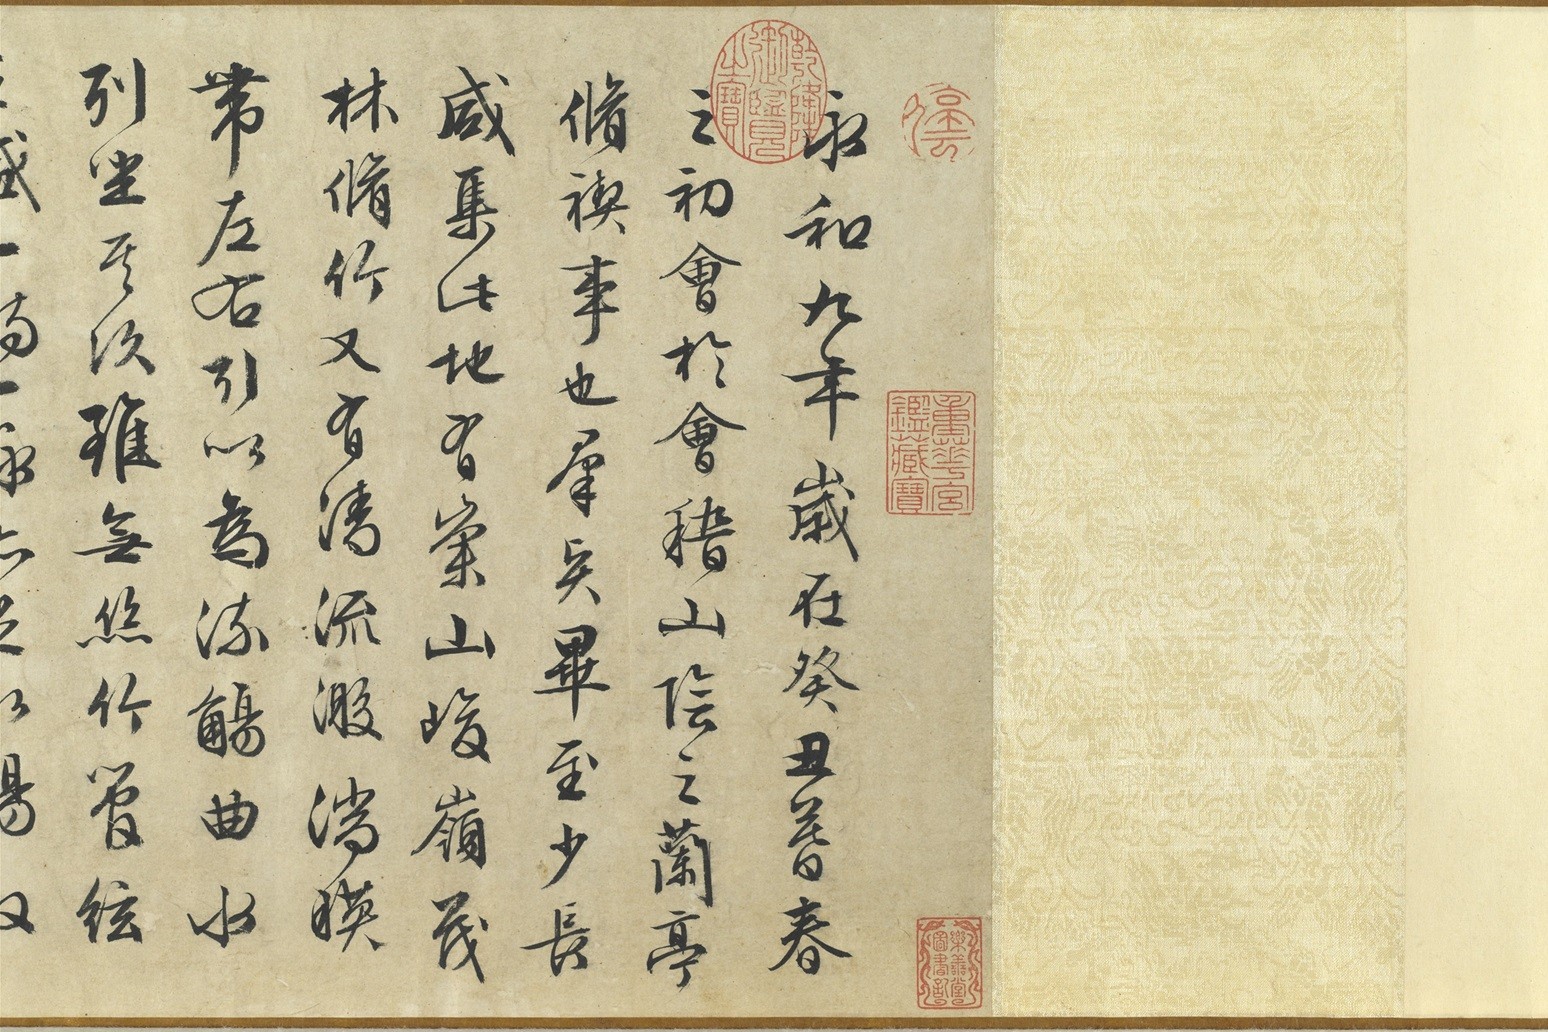 重華宮鑑藏寶
樂善堂圖書記
乾隆御覽之寶
永和九年歲在癸丑暮春
之初會於會稽山陰之蘭亭
脩禊事也羣賢畢至少長
咸集此地有崇山峻嶺茂
林脩竹又有清流激湍暎
帶左右引以為流觴曲水
列坐其次雖無絲竹管絃
盛一觴一詠亦足以暢叙